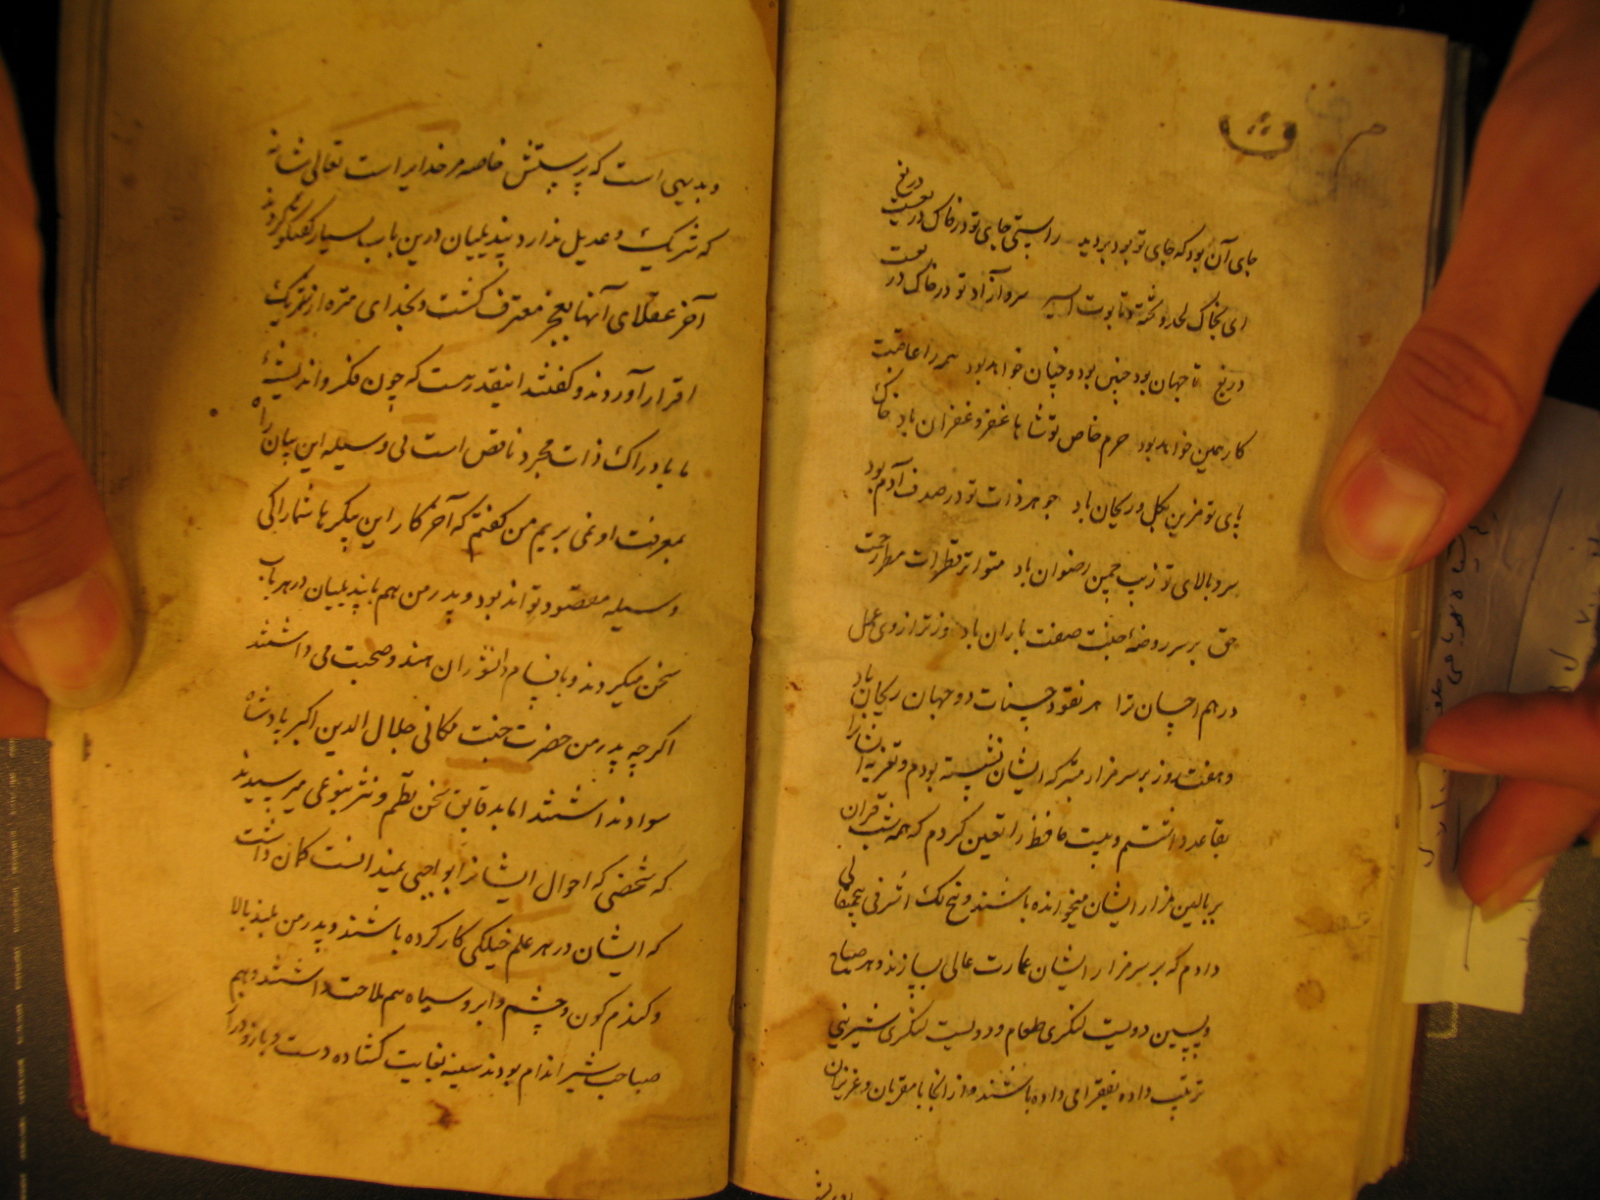 جای آن بود که جای تو بود بر دیده راستی جای تو در خاک دریغست دریغ
ای بخاک لحد و تخته تابوت اسیر سرو آزاد تو در خاک در بغست
دریغ تا جهان بود چنین بود و چنان خواهد بود همه را عاقبت
کار همین خواهد بود حرم خاص تو شاها غفر و غفران باد خاک
پای تو مزین بگل و ریحان باد جوهر ذات تو در صدف آدم بود
سرو بالای تو زیب چمن رضوان باد متواتر قطرات مطر رحمت
حق بر سر روضه اجنت صفت باران باد وز ترازوی عمل
درهم احسان ترا هر نقود حسنات دو جهان ریحان باد
و هفت روز بر سر مزار متبرکه ایشان نشسته بودم و تعزیه ایشان را
بقاعده داشتم و بیست حافظ را تعین کردم که همه شب قرآن
بر بالین مزار ایشان میخوانده باشند و پنج لک اشرفی پنجمثقالی
دادم که بر سر مزار ایشان عمارت عالی بسازند و هر صباح
و پسین دویست لنگری طعام و دویست لنگری شیرینی
ترتیب داده بفقرا می داده باشند و از انجا با مقربان و عزیزان
و بدیهی است که پرستش خاصه مر خدایرا است تعالی شانه
که شریک و عدیل ندارد پندیلیان درین باب بسیار گفتگو کردند
آخر عقلای آنها بعجز معترف گشت و بخدای منزه از شریک
اقرار آوردند و گفتند اینقدر هست که چون فکر و اندیشهٔ
ما با دراک ذات مجرد ناقص است بی وسیله این پیان راه
بمعرفت او نمی بریم من گفتم که آخر کار این پیکرها شما را کی
وسیله مقصود تواند بود و پدر من هم با پندیلیان در هر باب
سخن میکردند و با تمام دانشوران هند و صحبت می داشتند
اگر چه پدر من حضرت جنت مکانی جلال الدین اکبر پادشاه
سواد نداشتند اما بدقایق سخن نظم و نثر بنوعی میرسیدند
که شخصی که احوال ایشانرا بواجبی نمیدانست کمان داشت
که ایشان در هر علم خیلکی کار کرده باشند و پدر من بلند بالا
و کندم کون و چشم و ابرو سیاه هم ملاحت داشتند و هم
صباحت شیر اندام بودند سینه بغایت کشاده دست و بازو دراز